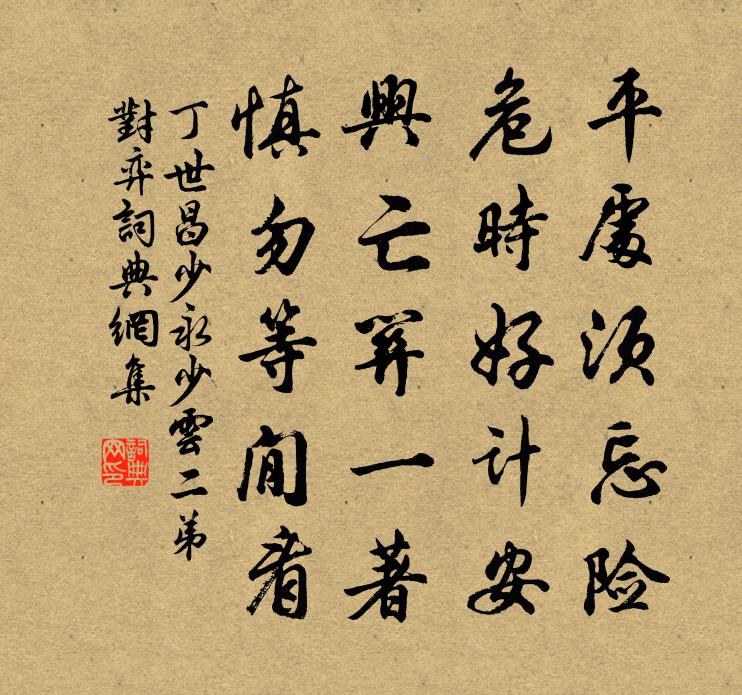 平處須忘险
危時好计安
興亡關一著
慎勿等闲看
丁世昌少永少雲二弟
對弈詞典網集
詞典
网印